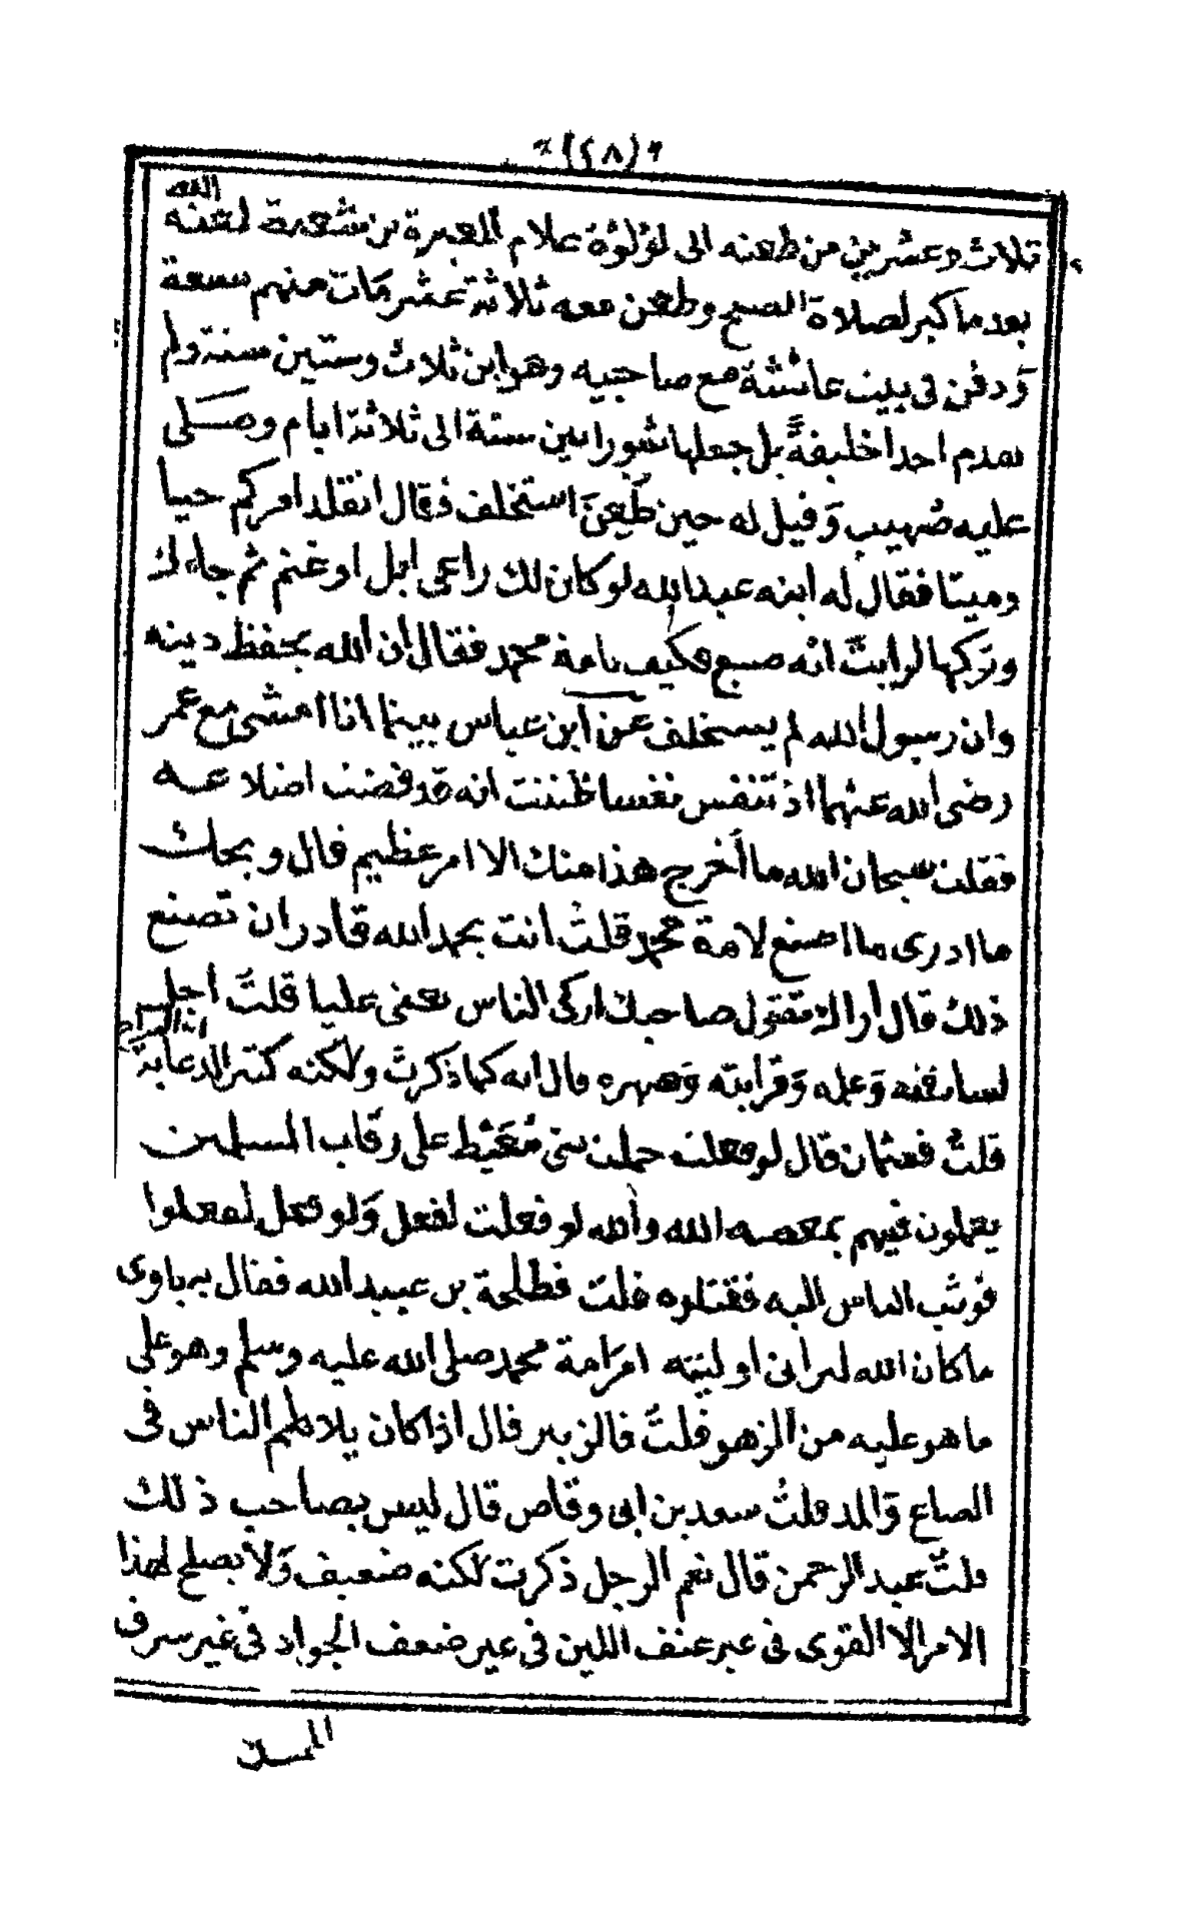 (٢٨)
ثلاث وعشرين من طعنه ابى لؤلؤة غلام المغيرة بن شعبة لعنه
الله
بعد ما كبر لصلاة الصبح وطعن معه ثلاثة عشر مات منهم سبعة
وَدفن فى بيت عائشة مع صاحبيه وهو ابن ثلاث وستين سنة ولم
يقدم احدا خليفةً بل جعلها شورا بين ستة الى ثلاثة ايام وصلى
عليه صُهيب وَقيل له حين طُعِنَ استخلف فقال اتقلد امركم حيا
وميتا فقال له ابنه عبد الله لو كان لك راعى ابل او غنم ثم جاءك
وتركها لرايتَ انه ضيع فكيف بامة محمد فقال ان الله يحفظ دينه
وان رسول الله لم يستخلف عن ابن عباس بينما انا امشى مع عمر
رضى الله عنهما اذ تنفس نفسا ظننت انه قد قضت اضلاعه
فقلت سبحان الله ما أخرج هذا منك الا امر عظيم قال ويحك
ما ادرى ما اصنع لامة محمد قلت انت بحمد الله قادر ان تصنع
ذلك قال أراك تقول صاحبك ازكى الناس يعنى عليا قلتُ اجل
لسابقته وَعلمه وَقرابته وَصهره قال انه كما ذكرتَ ولكنه كثير الدعابة
قلتُ فعثمان قال لو فعلت حملت بنى مُعَيْط على رقاب المسلمين
يعملون فيهم بمعصية الله والله لو فعلت لفعل وَلو فعل لفعلوا
فوثب الناس اليه فقتلوه قلت فطلحة بن عبيد الله فقال به باوى
ما كان الله ليرانى اوليته امرَ امة محمد صلى الله عليه وسلم وهو على
ما هو عليه من الزهو قلتُ فالزبير قال اذا كان يلاطم الناس فى
الصاع وَالمد قلتُ سعد بن ابى وقاص قال ليس بصاحب ذلك
قلتُ عبد الرحمن قال نعم الرجل ذكرت لكنه ضعيف وَلا يصلح لهذا
الامر الا القوى فى غير عنف اللين فى غير ضعف الجواد فى غير سرف
الممسك